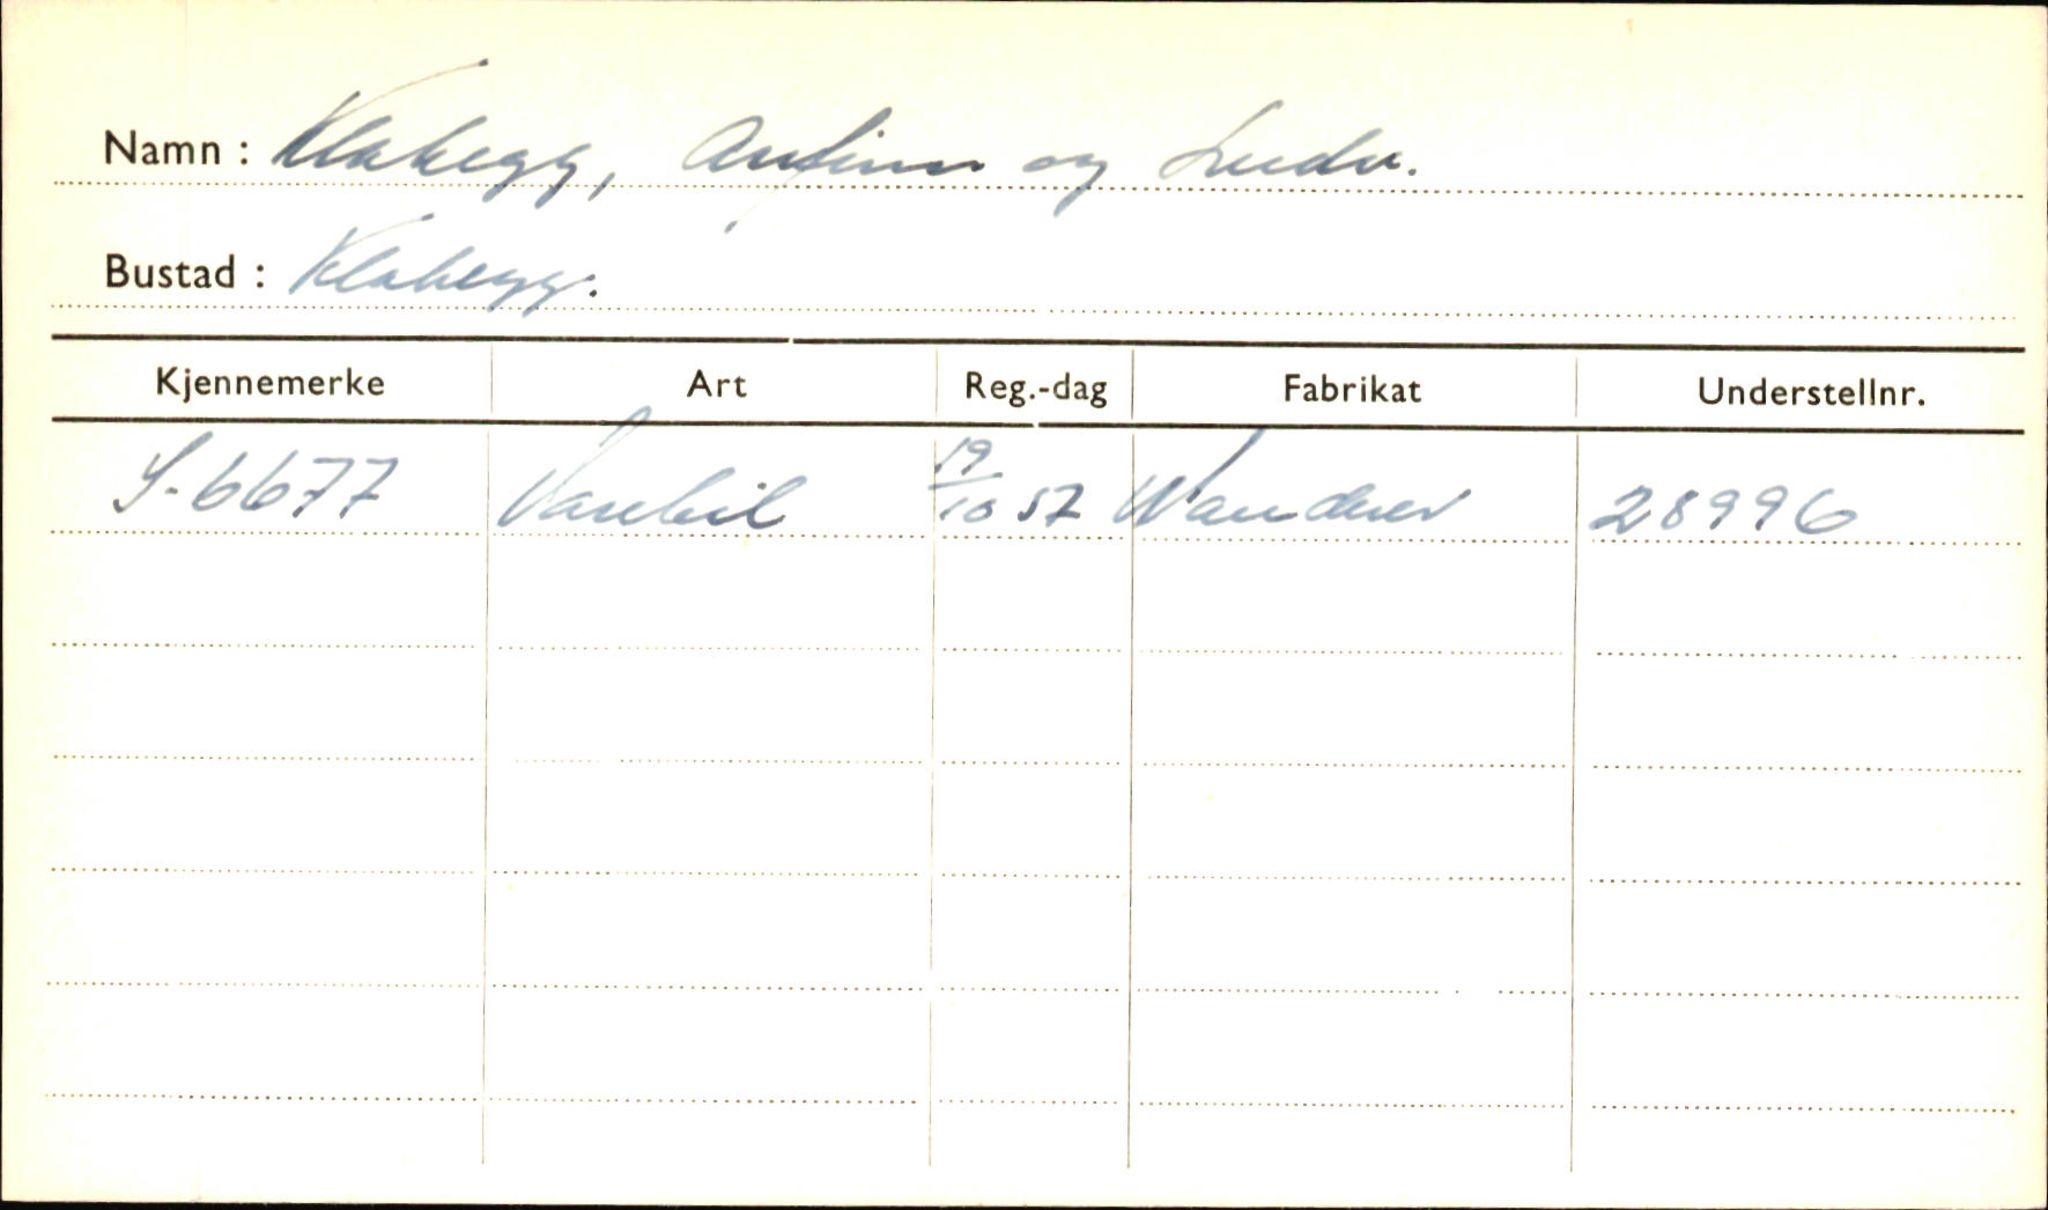 Namn : Klakegg, Anfinn og Ludv.
Bustad : Klakegg.
Kjennemerke Art Reg.-dag Fabrikat Understellnr.
S-6677 Varebil 19/10 57 Wanderer 28996